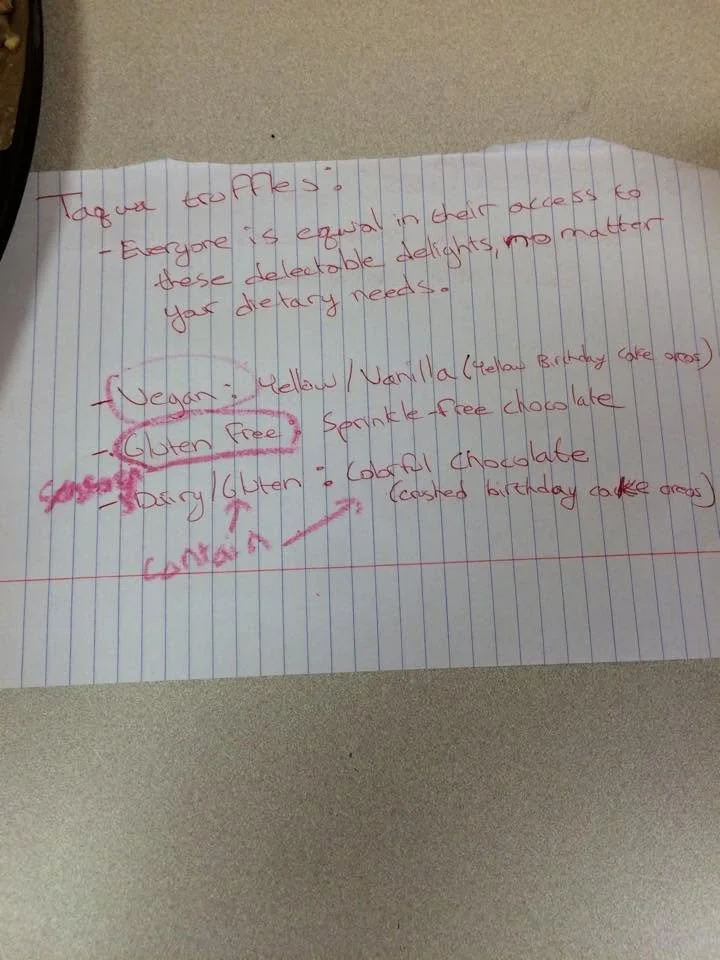 Taqwa truffles:
- Everyone is equal in their access to
these delectable delights, no matter
your dietary needs.
- Vegan: Yellow/Vanilla (Yellow Birthday Cake oreos)
- Gluten Free: Sprinkle-free chocolate
- Dairy/Gluten: Colorful Chocolate
(crushed birthday cake oreos)
contain